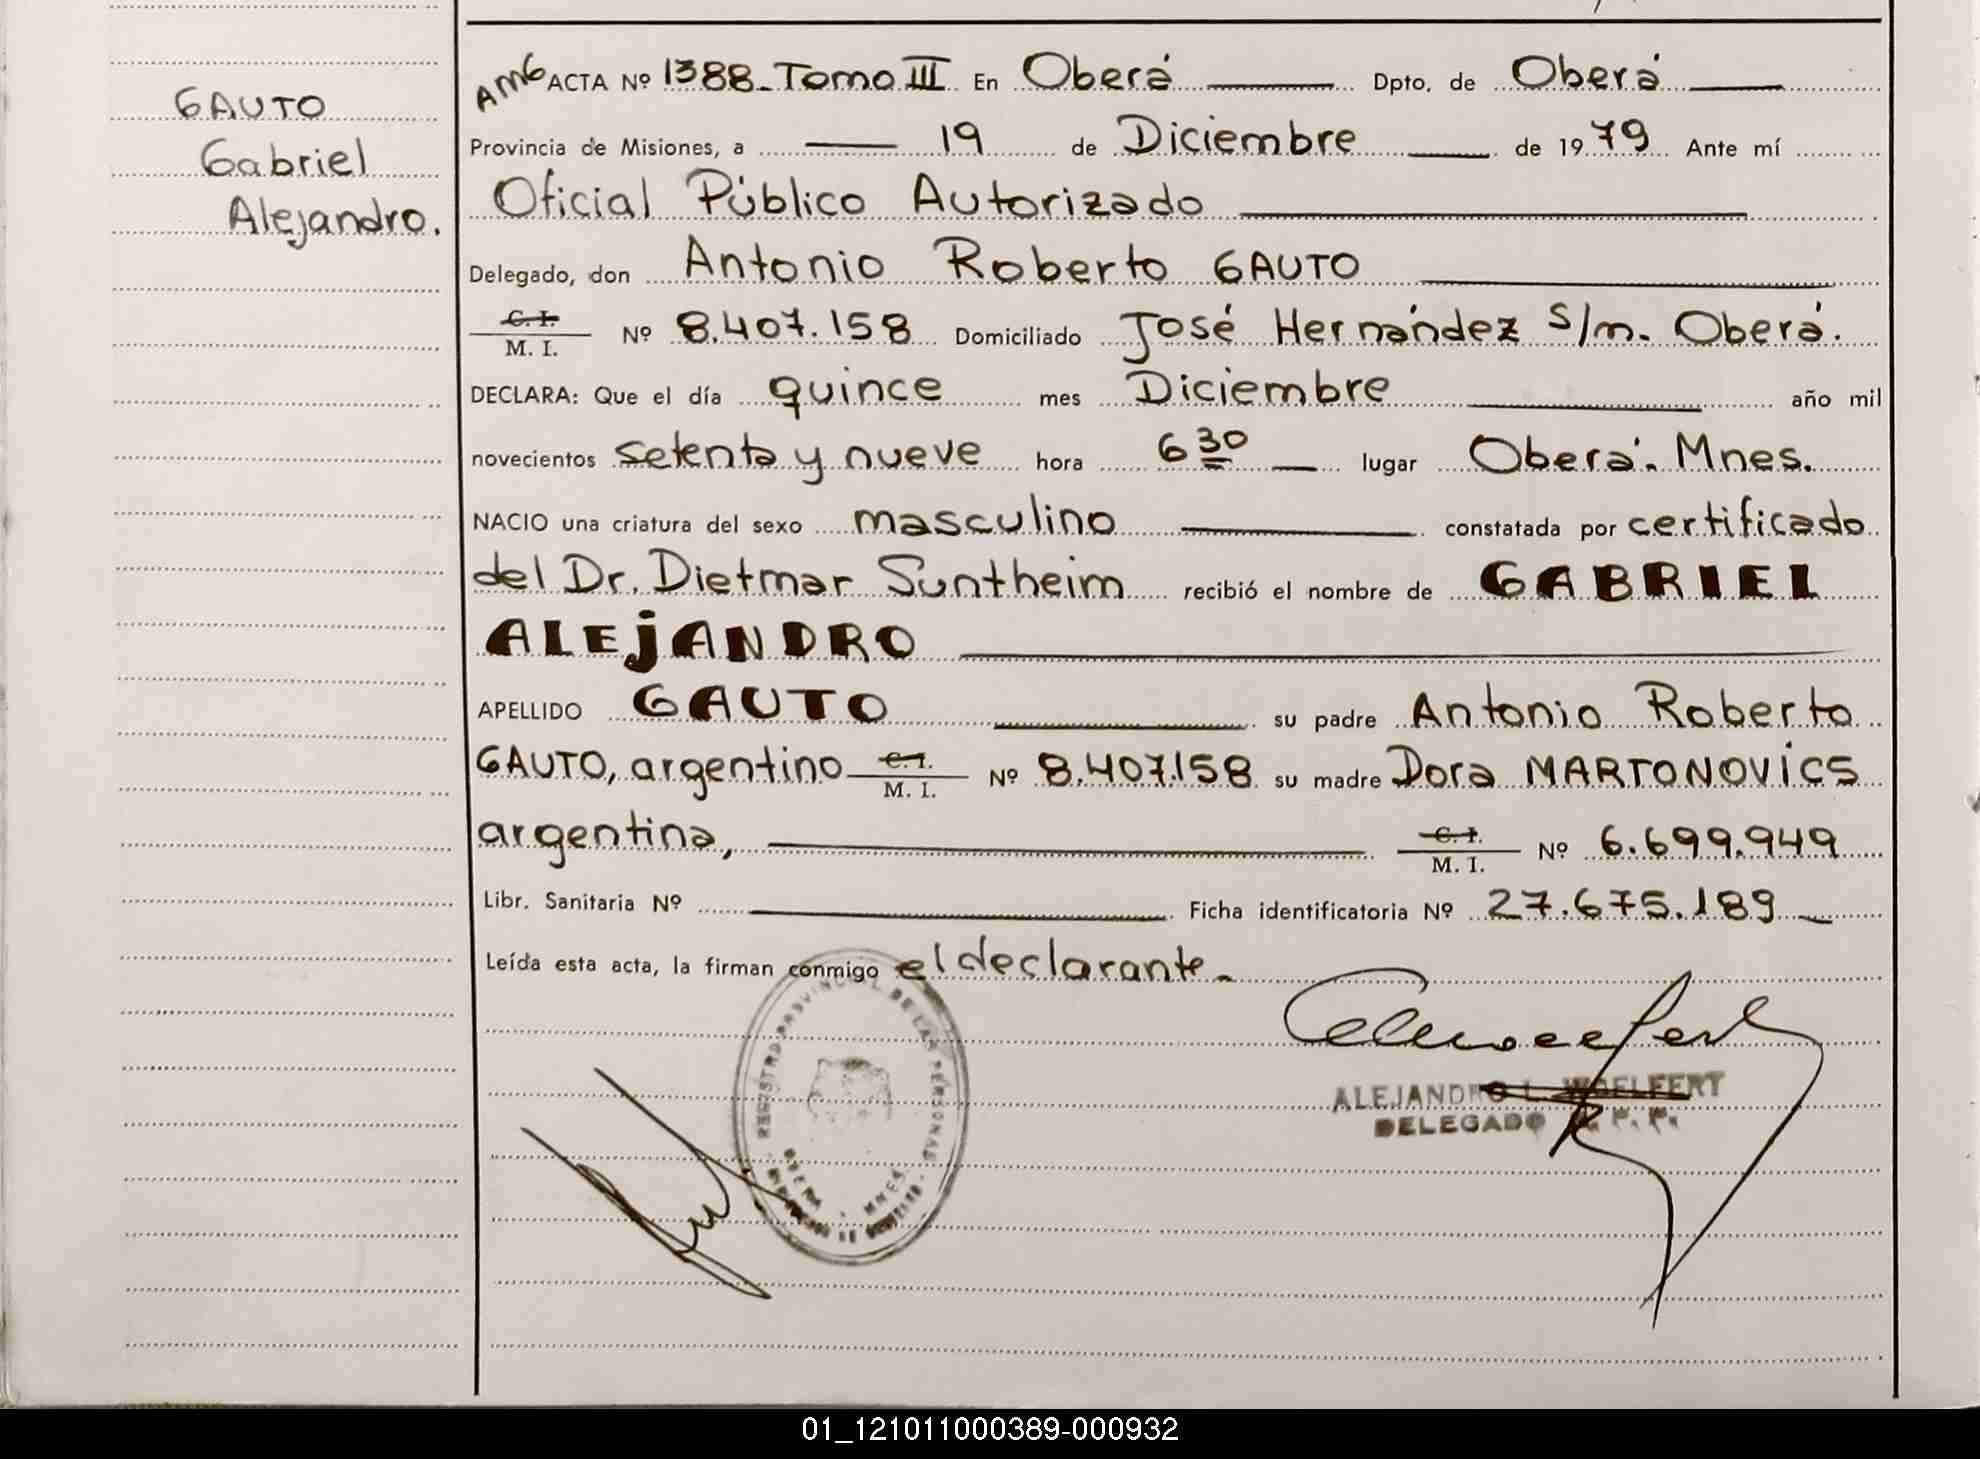 GAUTO
Gabriel
Alejandro.
AMG ACTA Nº 1388 - Tomo III En Oberá Dpto. de Oberá
Provincia de Misiones, a 19 de Diciembre de 1979 Ante mí
Oficial Público Autorizado
Delegado, don Antonio Roberto GAUTO
C. I. / M. I. Nº 8.407.158 Domiciliado José Hernández s/n. Oberá.
DECLARA: Que el día quince mes Diciembre año mil
novecientos setenta y nueve hora 6 30 lugar Oberá. Mnes.
NACIO una criatura del sexo masculino constatada por certificado
del Dr. Dietmar Suntheim recibió el nombre de GABRIEL
ALEJANDRO
APELLIDO GAUTO su padre Antonio Roberto
GAUTO, argentino C. I. / M. I. Nº 8.407.158 su madre Dora MARTONOVICS
argentina, C. I. / M. I. Nº 6.699.949
Libr. Sanitaria Nº Ficha identificatoria Nº 27.675.189
Leída esta acta, la firman conmigo el declarante -
REGISTRO PROVINCIAL DE LAS PERSONAS
OBERA - MNES
ALEJANDRO L. WOELFERT
DELEGADO
01_121011000389-000932